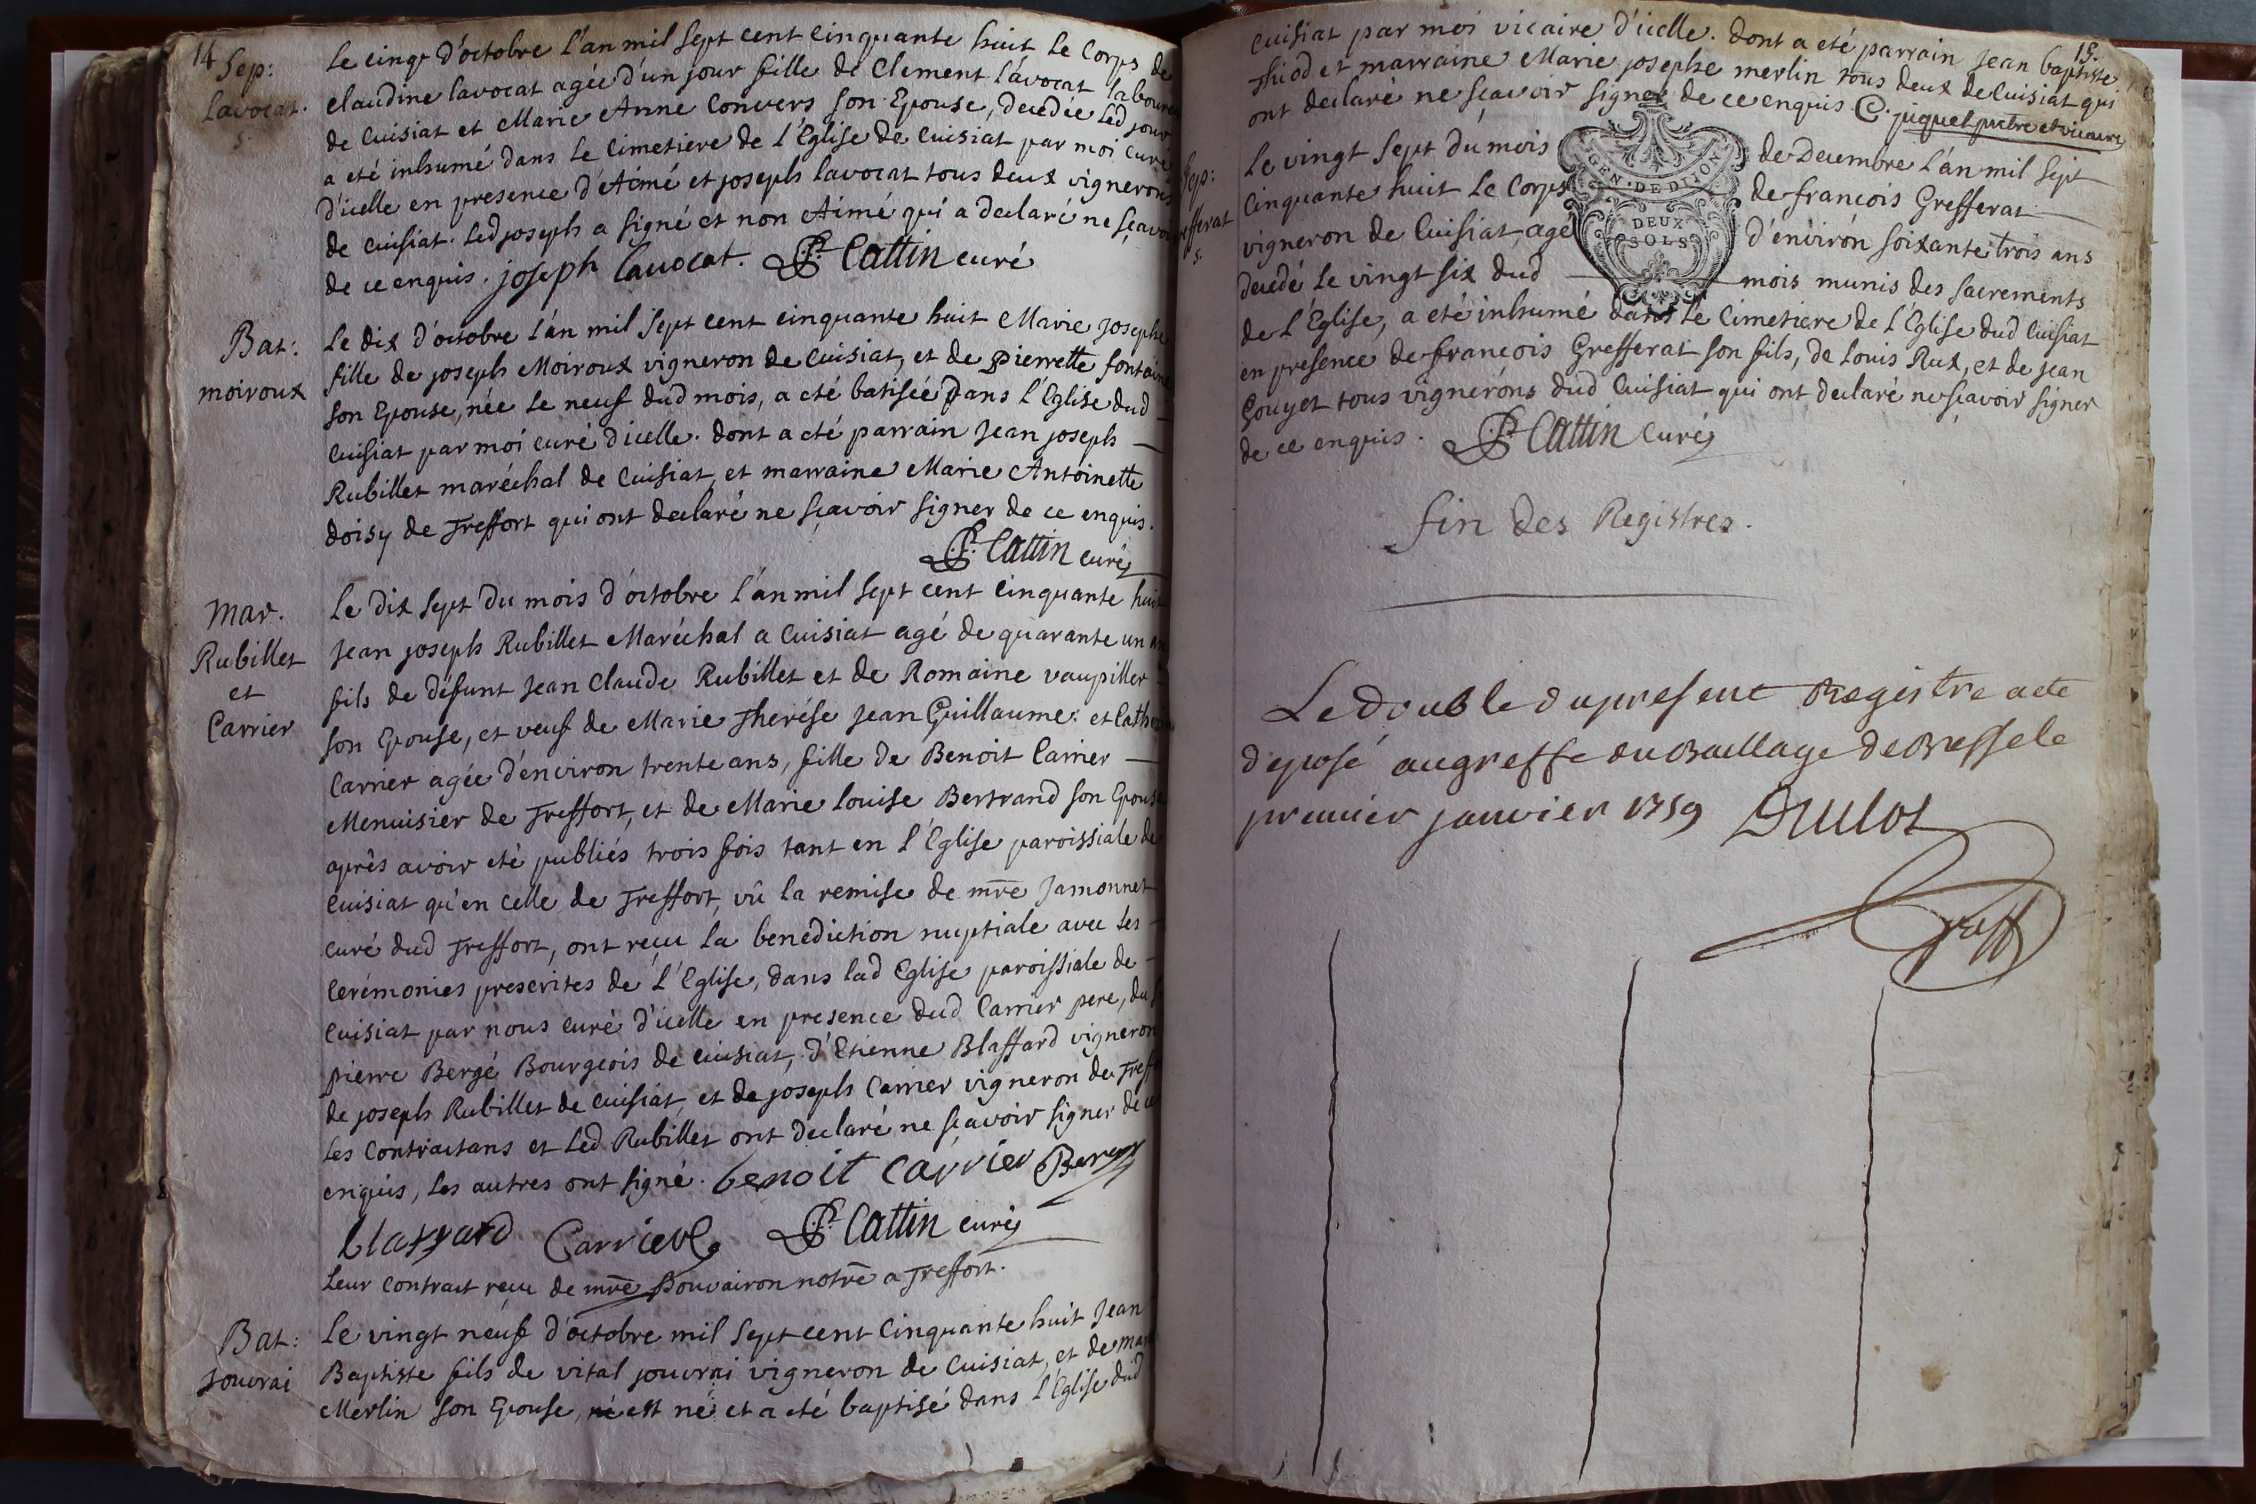 14
Sep:
lavocat.
s.
Le cinq d'octobre l'an mil sept cent cinquante huit le Corps de
claudine lavocat agée d'un jour fille de Clement lavocat laboureur
de Cuisiat et Marie Anne Convers son Epouse, decedée led jour
a eté inhumé dans le Cimetiere de l'Eglise de Cuisiat par moi curé
d'icelle en presence d'Aimé et joseph lavocat tous deux vignerons
de Cuisiat. Led joseph a signé et non Aimé qui a declaré ne sçavoir
de ce enquis. joseph lavocat. P. Cattin curé
Bat:
moiroux
Le dix d'octobre l'an mil sept cent cinquante huit Marie josephe
fille de joseph Moiroux vigneron de Cuisiat, et de Pierrette fontaine
son Epouse, née le neuf dud mois, a eté batisée dans l'Eglise dud
Cuisiat par moi curé d'icelle. dont a eté parrain Jean joseph
Rubillet maréchal de Cuisiat, et marraine Marie Antoinette
doisy de Treffort qui ont declaré ne sçavoir signer de ce enquis.
P. Cattin curé
Mar.
Rubillet
et
Carrier
Le dix sept du mois d'octobre l'an mil sept cent cinquante huit
Jean joseph Rubillet Maréchal a Cuisiat agé de quarante un ans
fils de défunt Jean Claude Rubillet et de Romaine vaupiller
son Epouse, et veuf de Marie Therése Jean Guillaume: et Catherine
Carrier agée d'environ trente ans, fille de Benoit Carrier
Menuisier de Treffort, et de Marie louise Bertrand son Epouse
après avoir eté publiés trois fois tant en l'Eglise paroissiale de
Cuisiat qu'en celle de Treffort, vû la remise de mre Jamonnet
curé dud Treffort, ont reçu la benediction nuptiale avec les
Cerémonies prescrites de l'Eglise, dans lad Eglise paroissiale de
Cuisiat par nous curé d'icelle en presence dud Carrier pere, du
pierre Bergé Bourgeois de Cuisiat, d'Etienne Blaffard vigneron
de joseph Rubillet de Cuisiat, et de joseph Carrier vigneron de Treff
Les Contractans et Led Rubillet ont declaré ne sçavoir signer de ce
enquis, les autres ont signé. benoit carrier
Carrier P. Cattin curé
Leur Contract reçu de mre Bouvairon notre a Treffort.
Bat:
Jouvrai
Le vingt neuf d'octobre mil sept cent Cinquante huit Jean
Baptiste fils de vital jouvrai vigneron de Cuisiat, et de Marie
Merlin son Epouse, né est né et a eté baptisé dans l'Eglise dud
15.
Cuisiat par moi vicaire d'icelle. dont a eté parrain Jean baptiste
Thiod et marraine Marie josephe merlin tous deux de Cuisiat qui
ont declaré ne sçavoir signer de ce enquis C. piquet prêtre et vicaire
GEN. DE DIJON
DEUX
SOLS
Sep:
grefferat
s.
Le vingt sept du mois de Decembre l'an mil sept
Cinquante huit le Corps de françois Grefferat
vigneron de Cuisiat, agé d'environ soixante trois ans
decedé le vingt six dud mois munis des sacrements
de l'Eglise, a eté inhumé dans le Cimetiere de l'Eglise dud Cuisiat
en presence de françois Grefferat son fils, de louis Rux, et de Jean
Gouyet tous vignerons dud Cuisiat qui ont declaré ne sçavoir signer
de ce enquis. P. Cattin Curé
fin des Registres.
Le double du present Registre a ete
déposé au greffe du Baillage de Bresse le
premier janvier 1759
Greff